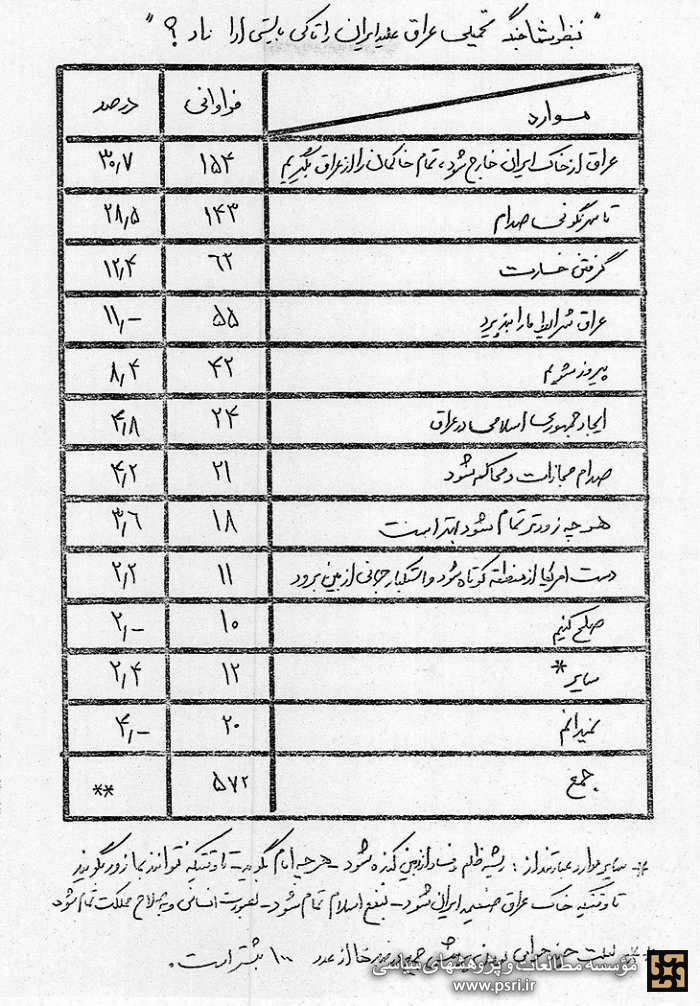 "بنظر شما جنگ تحمیلی عراق علیه ایران را تا کی بایستی ادامه داد؟"
موارد فراوانی درصد
عراق از خاک ایران خارج شود، تمام خاکمان را از عراق بگیریم ۱۵۴ ۳۰٫۷
تا سرنگونی صدام ۱۴۳ ۲۸٫۵
گرفتن خسارت ۶۲ ۱۲٫۴
عراق شرایط ما را بپذیرد ۵۵ ۱۱٫-
پیروز شویم ۴۲ ۸٫۴
ایجاد جمهوری اسلامی در عراق ۲۴ ۴٫۸
صدام مجازات و محاکمه شود ۲۱ ۴٫۲
هر چه زودتر تمام شود بهتر است ۱۸ ۳٫۶
دست امریکا از منطقه کوتاه شود و استکبار جهانی از بین برود ۱۱ ۲٫۲
صلح کنیم ۱۰ ۲٫-
سایر* ۱۲ ۲٫۴
نمیدانم ۲۰ ۴٫-
جمع ۵۷۲ **
* سایر موارد عبارتند از: ریشه ظلم و فساد از بین کنده شود - هر چه امام بگوید - تا وقتیکه نتوانند بما زور بگویند
تا وقتیکه خاک عراق ضمیمه ایران شود - بنفع اسلام تمام شود - بصورت اساسی و به صلاح مملکت تمام شود
** بعلت چند جوابی بودن جمع درصدها از عدد ۱۰۰ بیشتر است.
مؤسسه مطالعات و پژوهشهای سیاسی
www.psri.ir